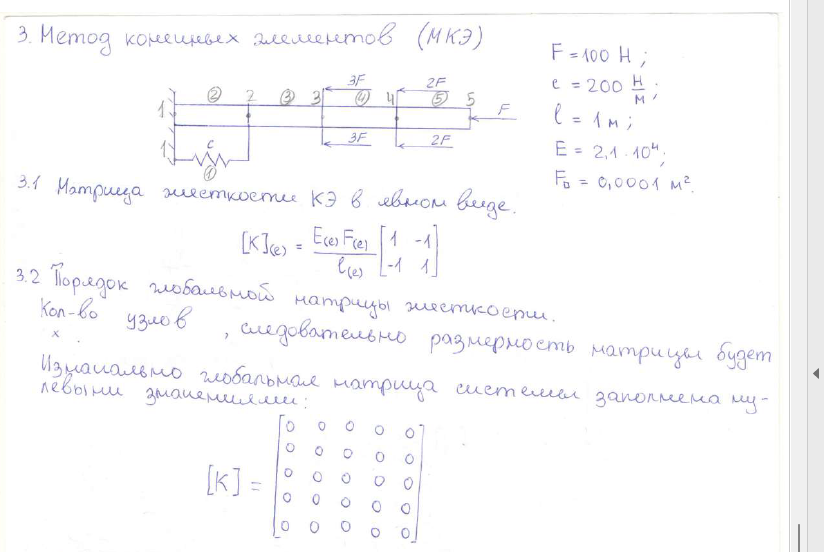 3. Метод конечных элементов (МКЭ)
F = 100 Н ;
c = 200 Н/м ;
l = 1 м ;
E = 2,1 · 10⁴ ;
F₀ = 0,0001 м².
② 2 ③ 3 3F ④ 4 2F ⑤ 5
1 F
1 c 3F 2F
①
3.1 Матрица жесткости КЭ в явном виде.
[K](e) = E(e) F(e) / l(e) [1 -1
-1 1]
3.2 Порядок глобальной матрицы жесткости.
Кол-во узлов , следовательно размерность матрицы будет
x .
Изначально глобальная матрица системы заполнена ну-
левыми значениями:
[K] = [0 0 0 0 0
0 0 0 0 0
0 0 0 0 0
0 0 0 0 0
0 0 0 0 0]